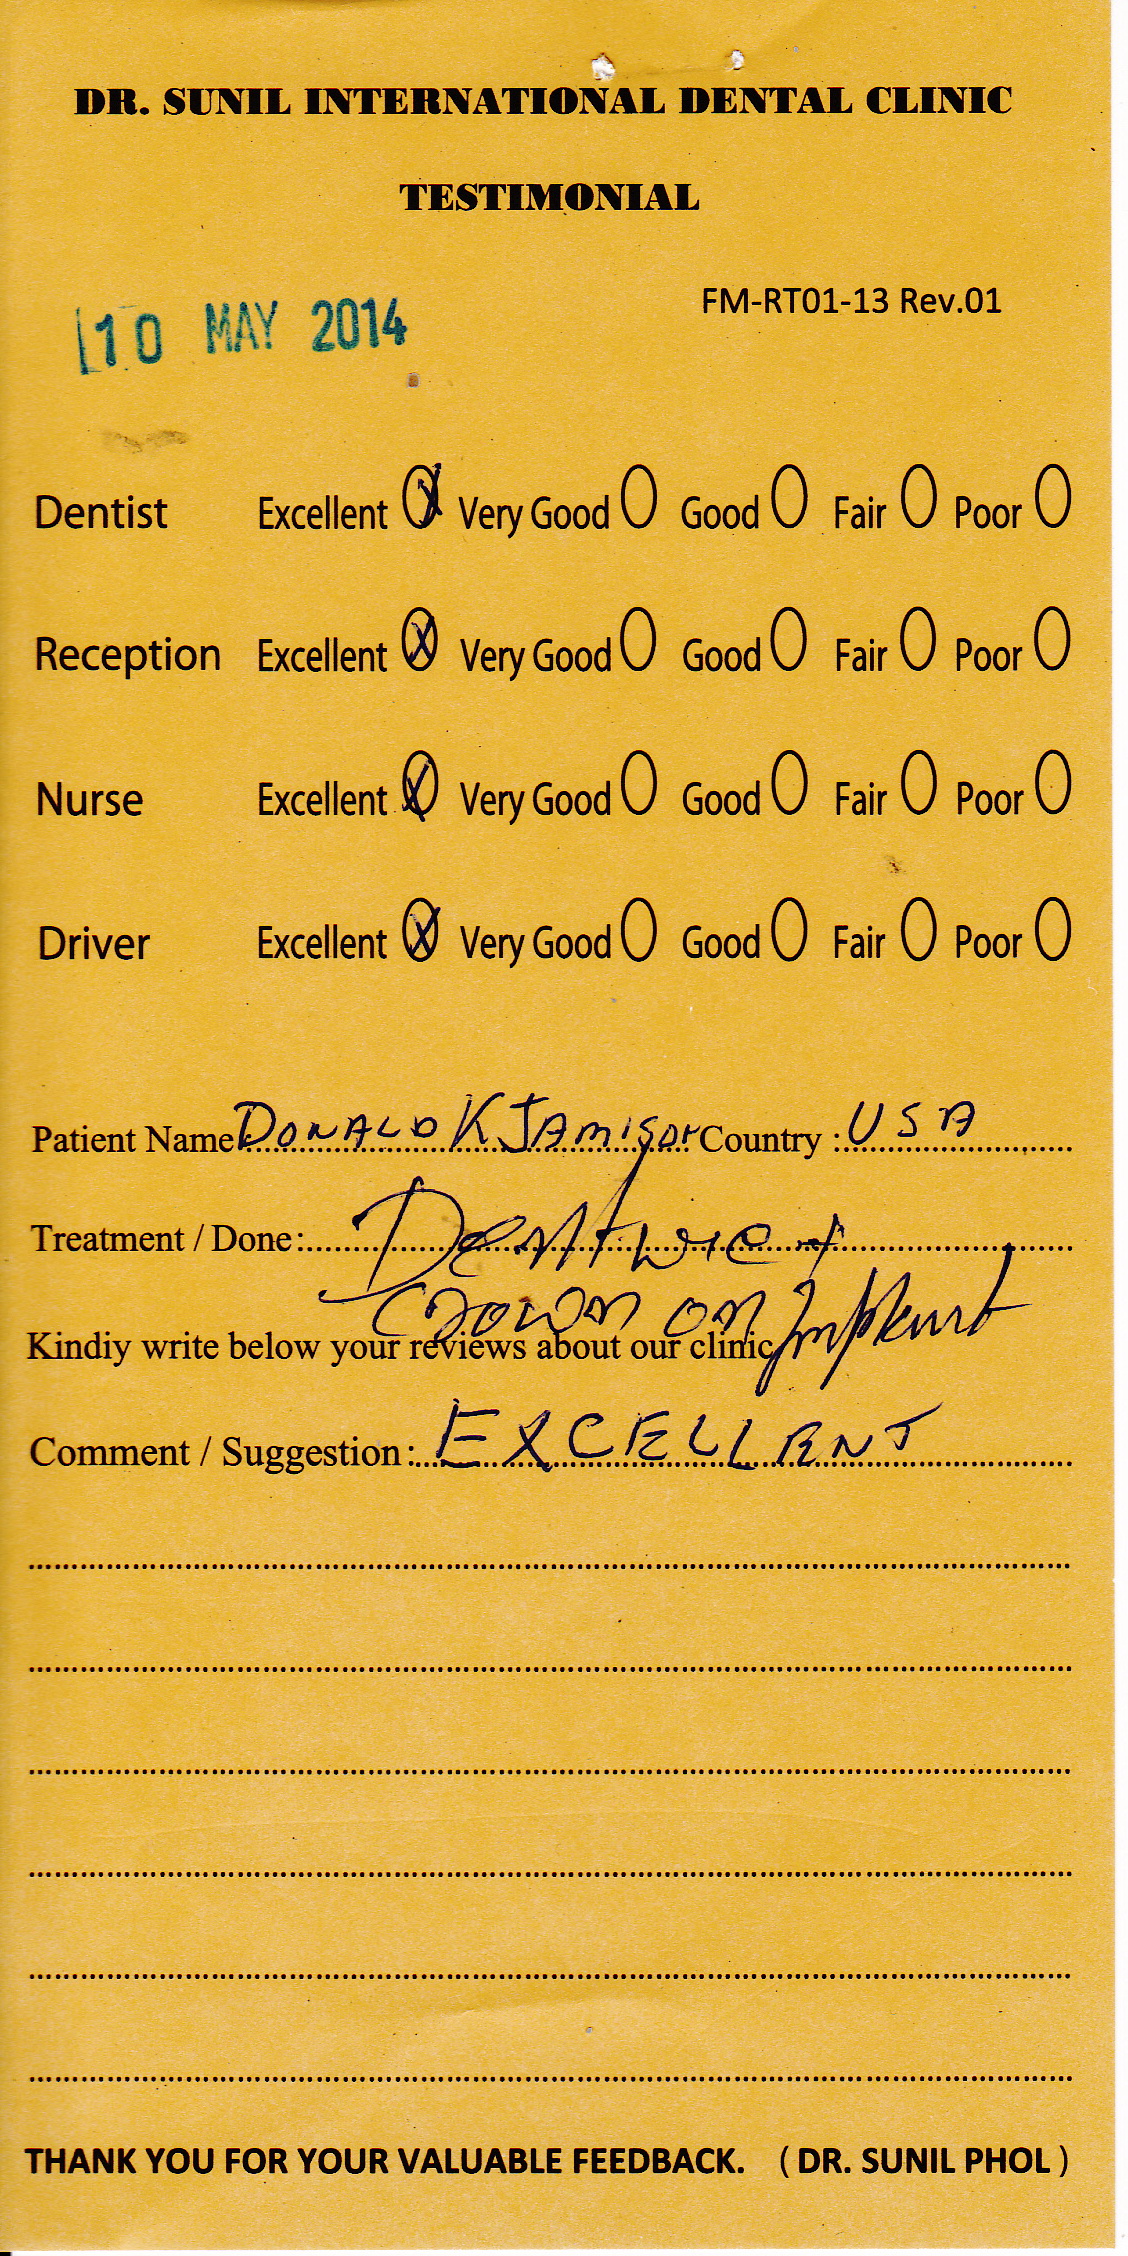 DR. SUNIL INTERNATIONAL DENTAL CLINIC
TESTIMONIAL
FM-RT01-13 Rev.01
10 MAY 2014
Dentist Excellent X Very Good Good Fair Poor
Reception Excellent X Very Good Good Fair Poor
Nurse Excellent X Very Good Good Fair Poor
Driver Excellent X Very Good Good Fair Poor
Patient Name: DONALD K JAMISON Country : USA
Treatment / Done:
Crown on Implant
Kindiy write below your reviews about our clinic
Comment / Suggestion : EXCELLENT
THANK YOU FOR YOUR VALUABLE FEEDBACK. ( DR. SUNIL PHOL )